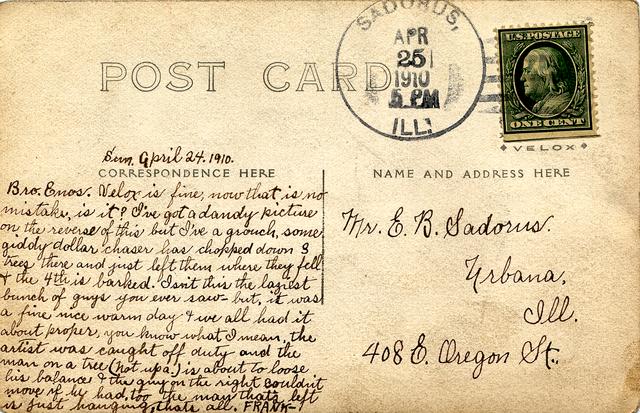 SADORUS,
APR
25
1910
5 PM
ILL.
U.S. POSTAGE
ONE CENT
POST CARD
VELOX
Sun. April 24. 1910.
CORRESPONDENCE HERE
Bro. Enos. Velox is fine, now that is no
mistake, is it? I've got a dandy picture
on the reverse of this but I've a grouch, some
giddy dollar chaser has chopped down 3
trees there and just left them where they fell
& the 4th is barked. Isn't this the laziest
bunch of guys you ever saw - but, it was
a fine nice warm day & we all had it
about proper, you know what I mean, the
artist was caught off duty and the
man on a tree (not up a.) is about to loose
his balance & the guy on the right couldn't
move if he had, too the may thats left
is just hanging, thats all. FRANK-
NAME AND ADDRESS HERE
Mr. E. B. Sadorus.
Urbana,
Ill.
408 E. Oregon St.